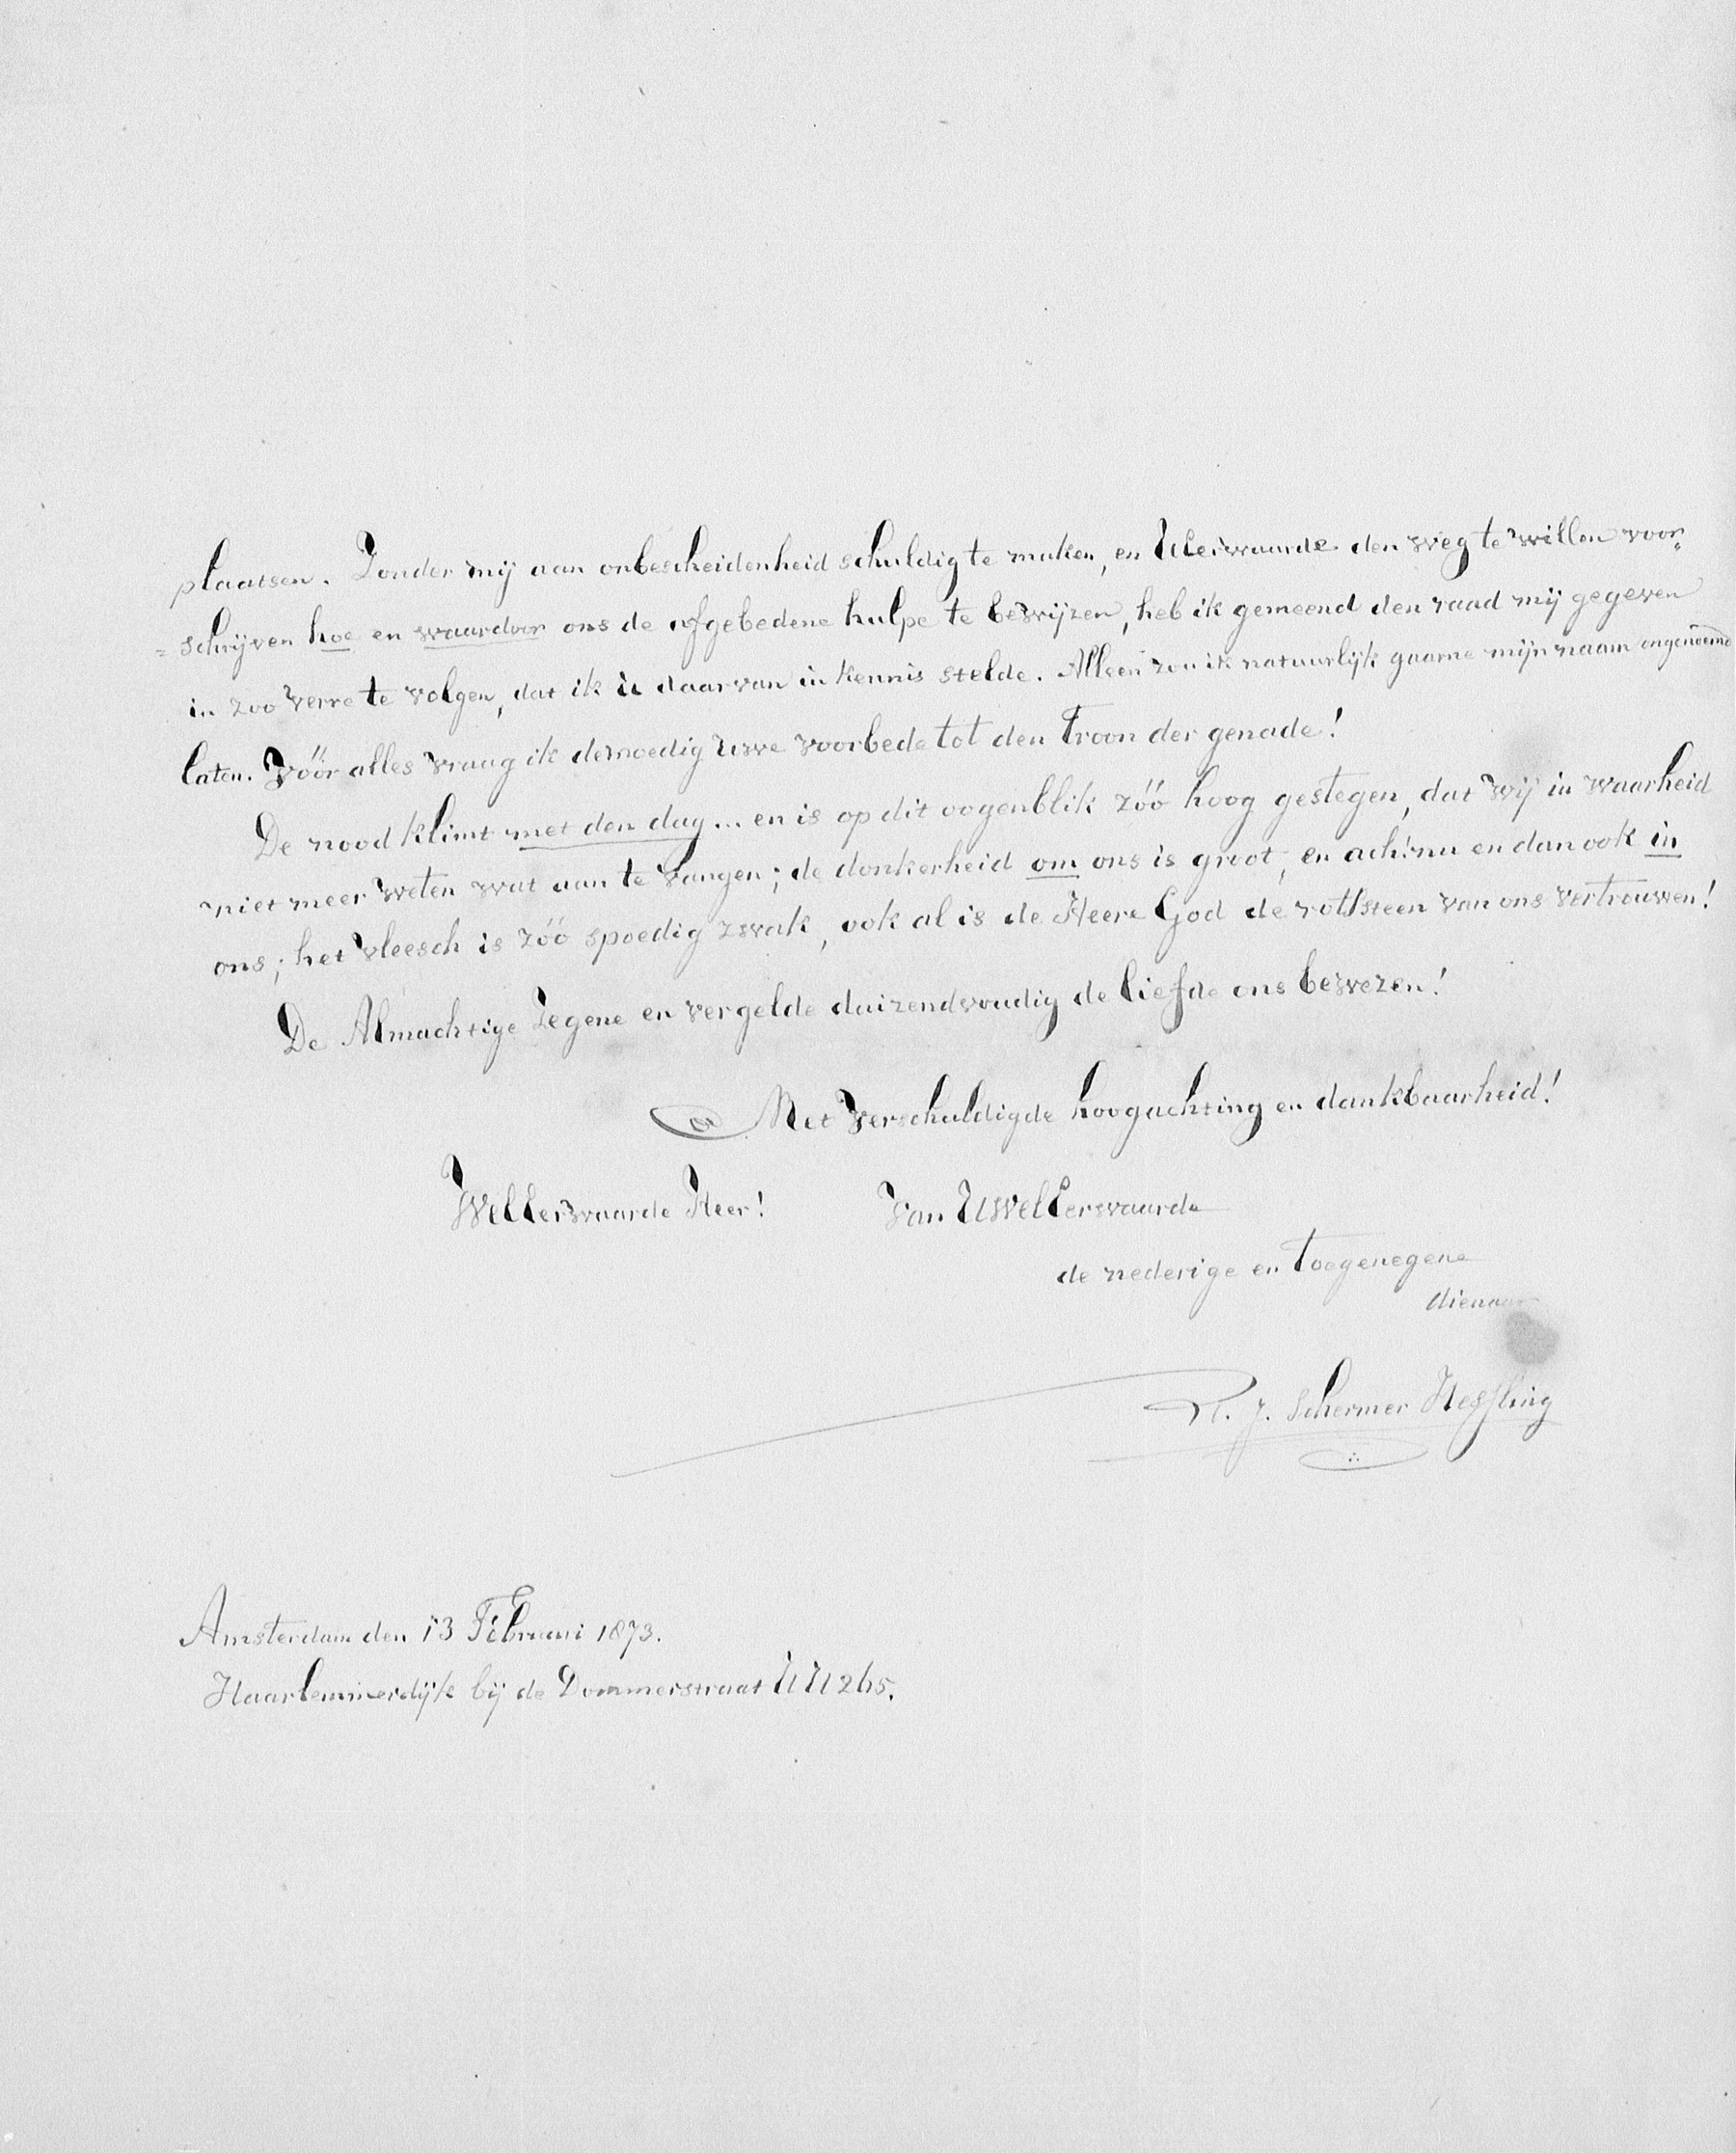 plaatsen. Zonder mij aan onbescheidenheid schuldig te maken, en UEerwaarde den weg te willen voor„
= schrijven hoe en waardoor ons de afgebedene hulpe te bewijzen, heb ik gemeend den raad mij gegeven
in zoo verre te volgen, dat ik U daarvan in kennis stelde. Alleen zou ik natuurlijk gaarne mijn naam ongenoemd
laten. Vóór alles vraag ik demoedig Uwe voorbede tot den Troon der genade!
De nood klimt met den dag... en is op dit oogenblik zóó hoog gestegen, dat wij in waarheid
niet meer weten wat aan te vangen; de donkerheid om ons is groot, en ach! nu en dan ook in
ons; het vleesch is zóó spoedig zwak, ook al is de Heere God de rotssteen van ons vertrouwen!
De Almachtige Zegene en vergelde duizendvoudig de liefde ons bewezen!
Met verschuldigde hoogachting en dankbaarheid!
WelEerwaarde Heer! Van UWelEerwaarde
de nederige en toegenegene
dienaar
R. J. Schermer Hessling
Amsterdam den 13 Februari 1873.
Haarlemmerdijk bij de Dommerstraat UU 265.